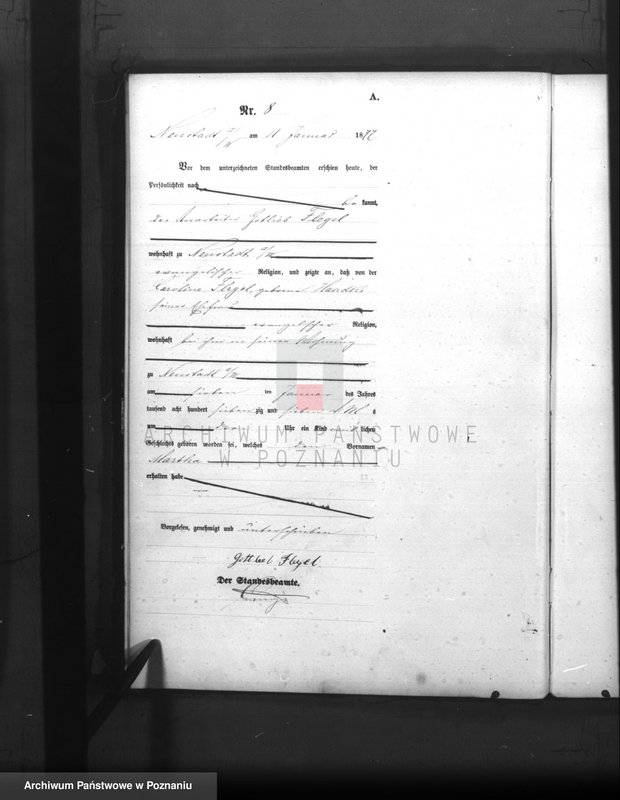 A.
Nr. 8
Neustadt am 11 Januar 1877
Vor dem unterzeichneten Standesbeamten erschien heute, der
Persönlichkeit nach
be kannt,
der Gottlieb Flegel
wohnhaft zu Neustadt
evangelischer Religion, und zeigte an, daß von der
Caroline Flegel, geborne
seiner Ehefrau
evangelischer Religion,
wohnhaft bei ihm in seiner Wohnung
zu Neustadt
am sieben ten Januar des Jahres
tausend acht hundert sieben zig und sieben
um Uhr ein Kind lichen
Geschlechts geboren worden sei, welches den Vornamen
Martha
erhalten habe
Vorgelesen, genehmigt und unterschrieben
Gottlieb Flegel
Der Standesbeamte.
ARCHIWUM PAŃSTWOWE
W POZNANIU
Archiwum Państwowe w Poznaniu